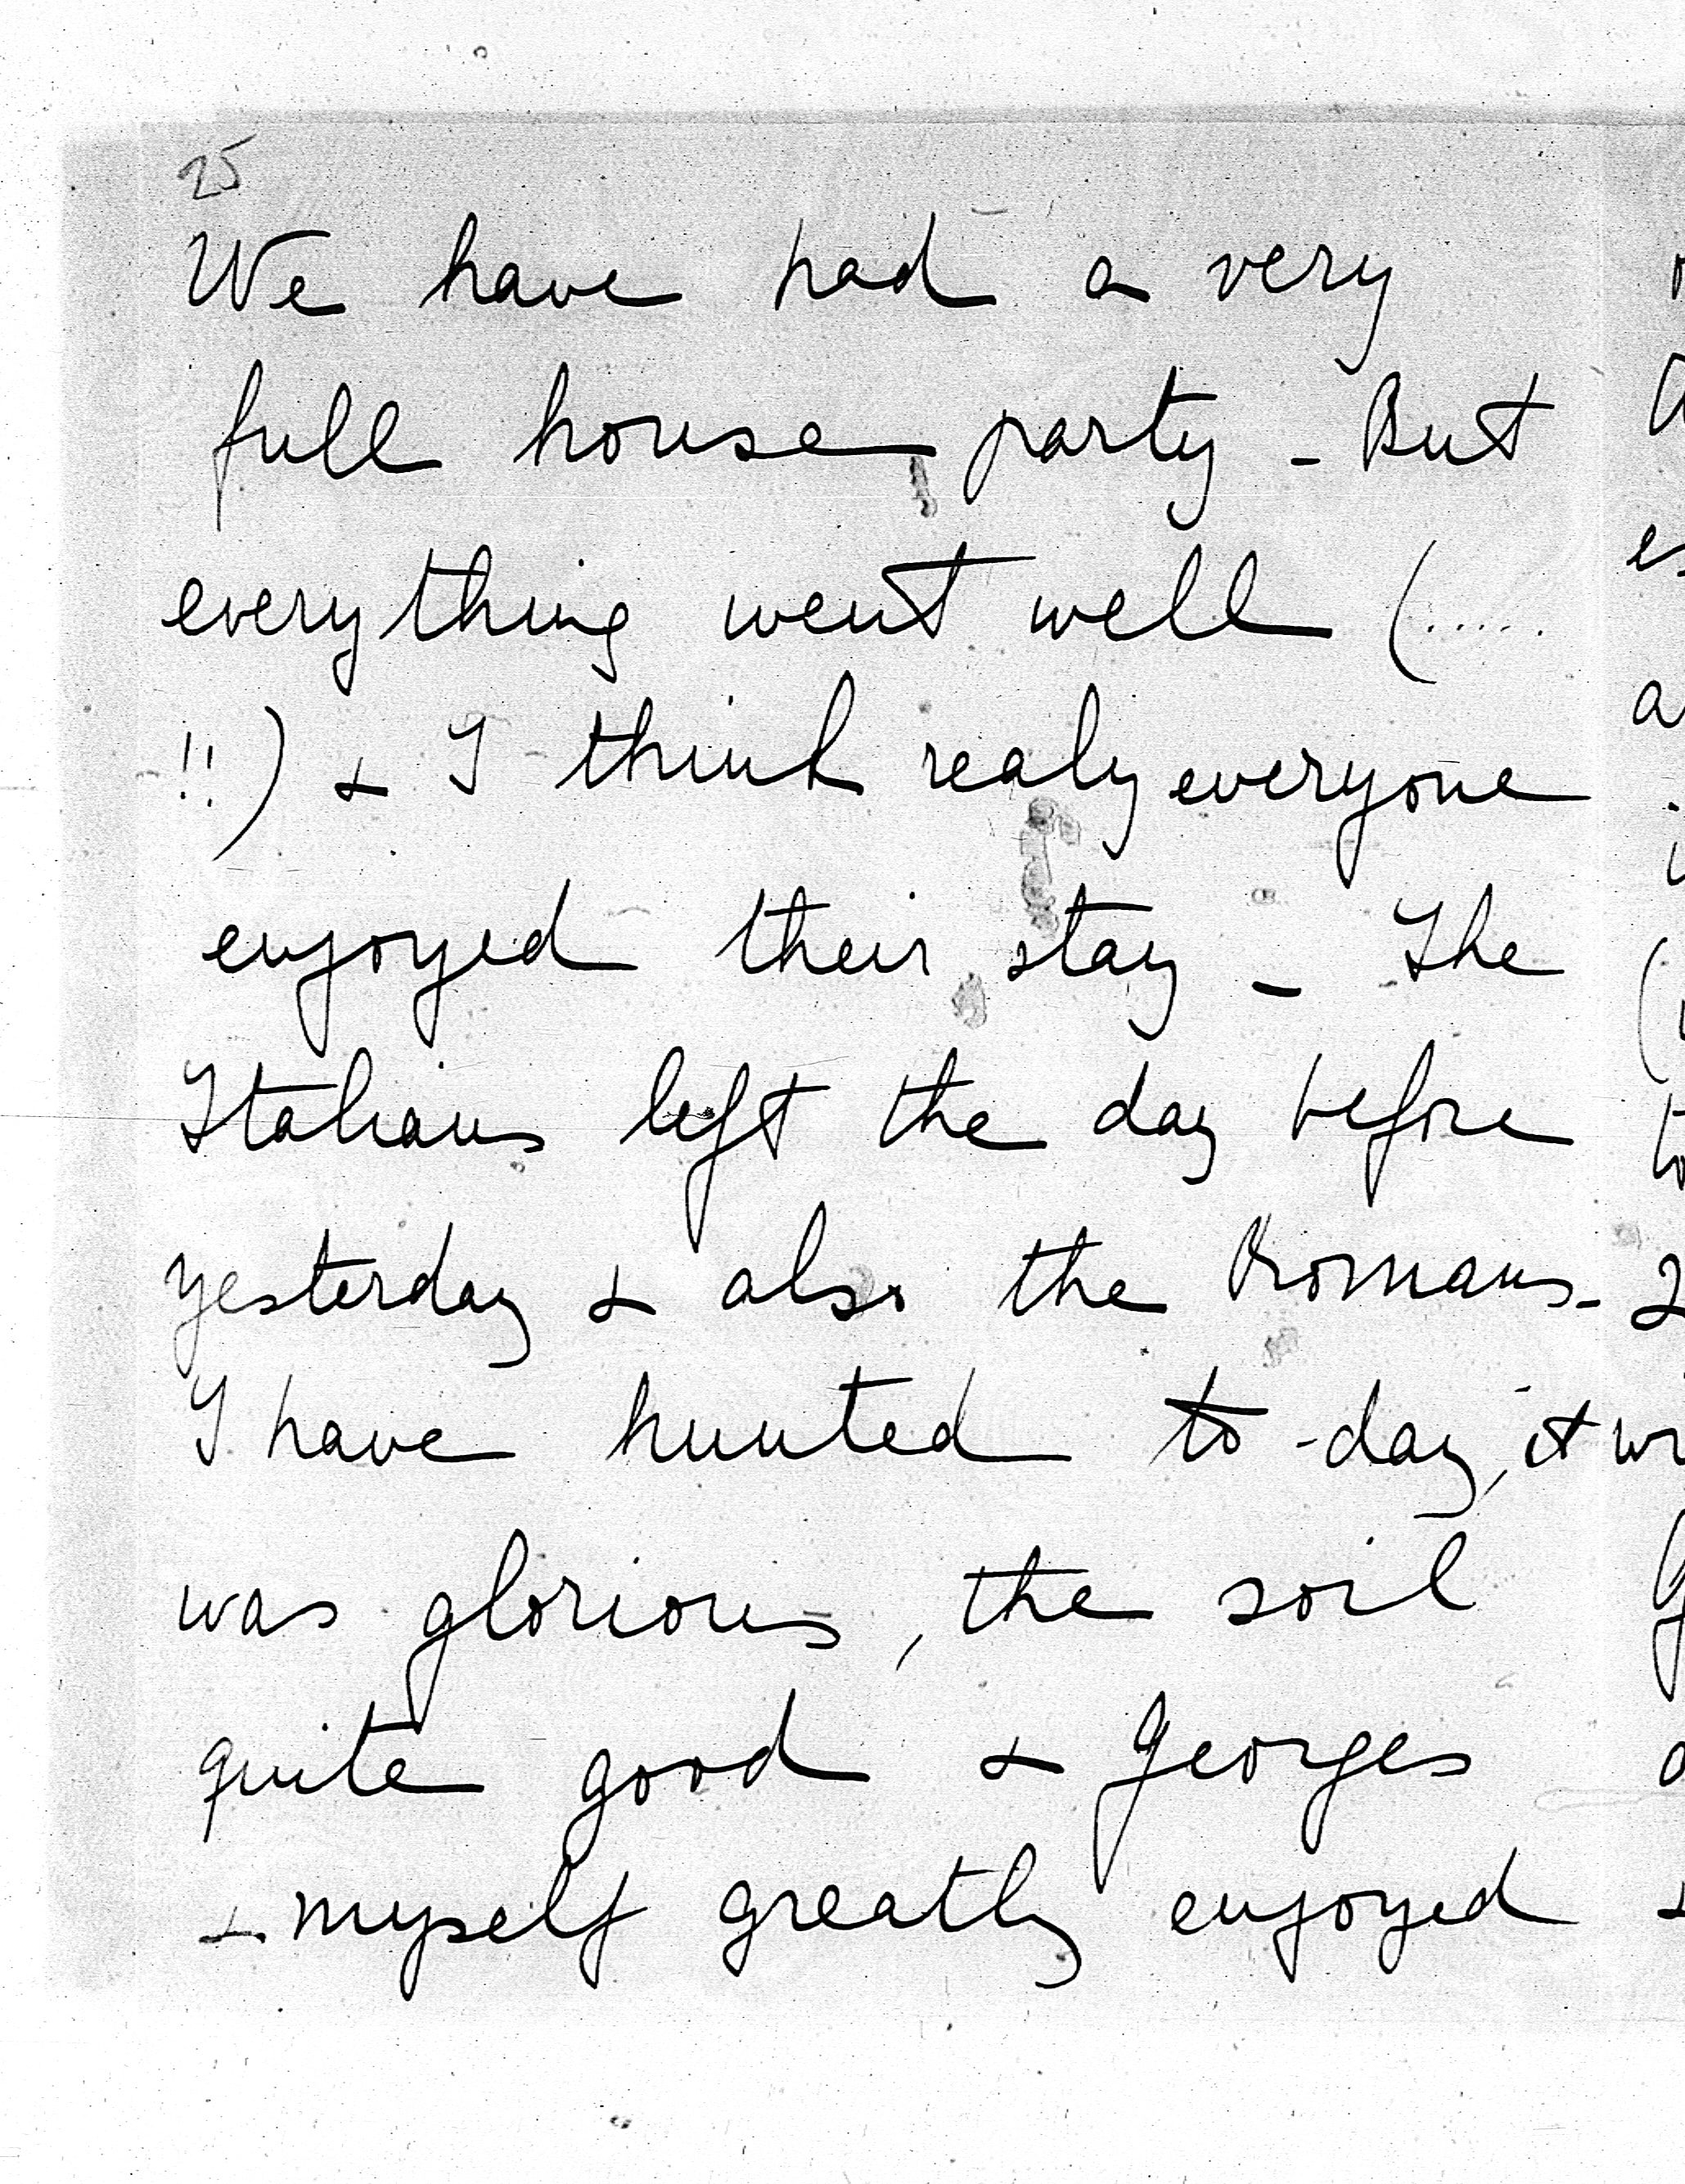 25
We have had a very
full house party - But
everything went well (.....
!!) & I think realy everyone
enjoyed their stay - The
Italians left the day before
yesterday & also the Romans -
I have hunted to-day, it
was glorious, the soil
quite good & Georges
& myself greatly enjoyed